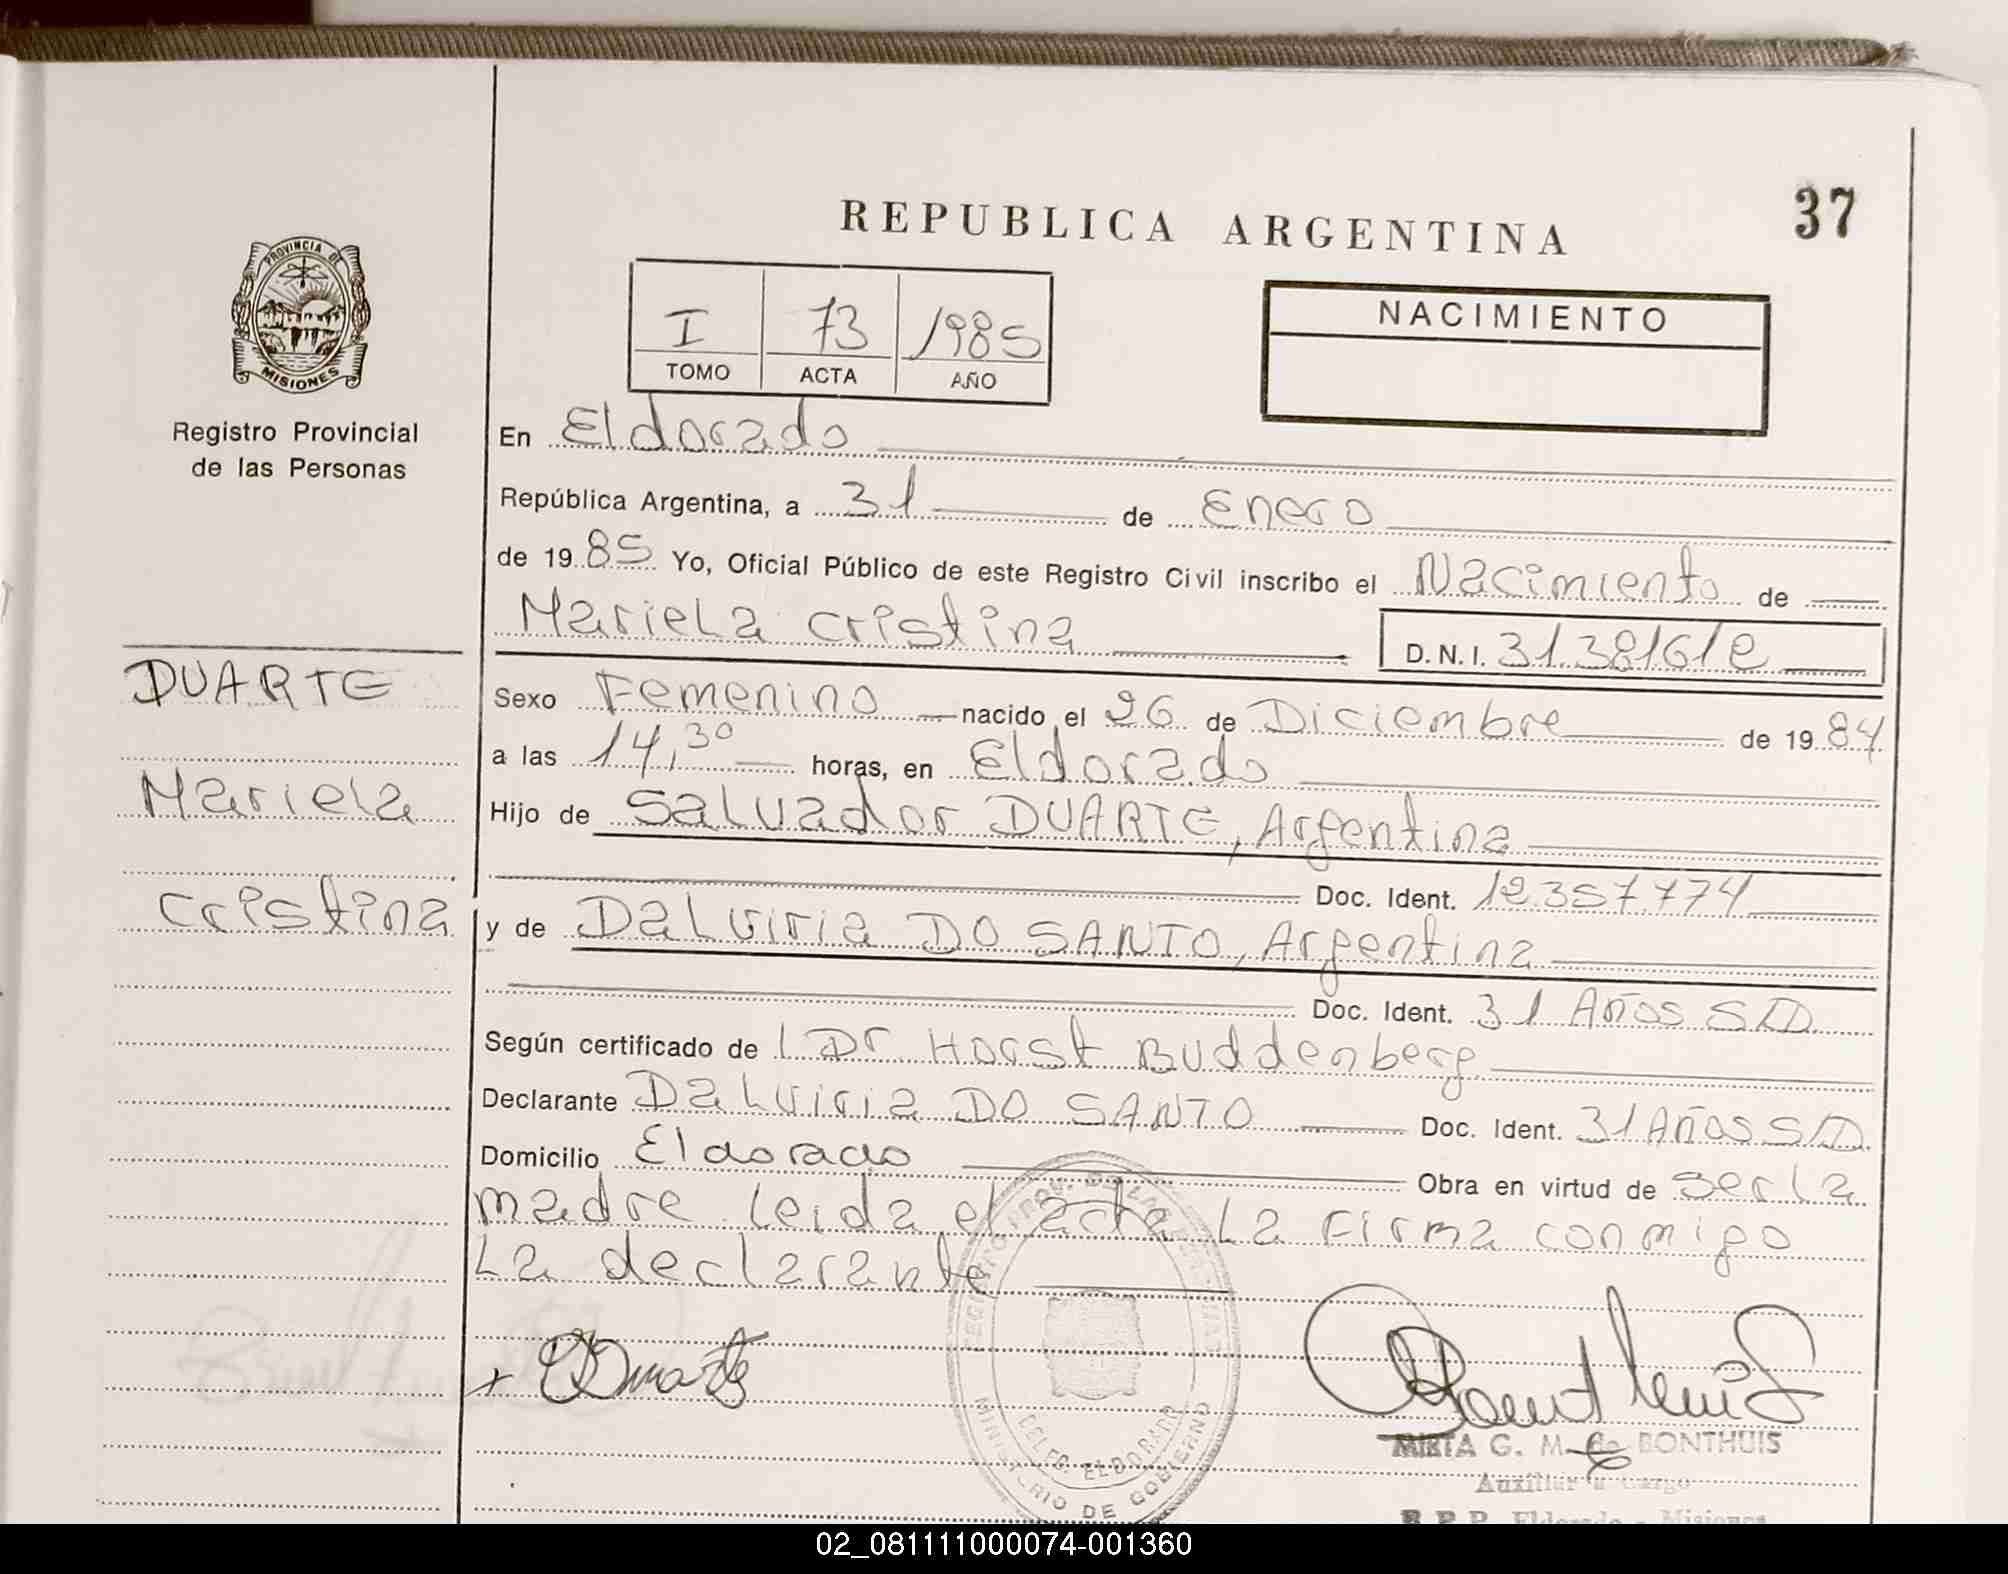 37
REPUBLICA ARGENTINA
PROVINCIA DE
MISIONES
Registro Provincial
de las Personas
I 73 1985
TOMO ACTA AÑO
NACIMIENTO
En Eldorado
República Argentina, a 31 de Enero
de 1985 Yo, Oficial Público de este Registro Civil inscribo el Nacimiento de
Mariela Cristina D.N.I. 31.381612
DUARTE
Mariela
Cristina
Sexo Femenino nacido el 26 de Diciembre de 1984
a las 14,30 horas, en Eldorado
Hijo de Salvador DUARTE, Argentina
Doc. Ident. 12.357.774
y de Dalviria DO SANTO, Argentina
Doc. Ident. 31 Años S/D.
Según certificado de Dr Horst Buddenberg
Declarante Dalviria DO SANTO Doc. Ident. 31 Años S/D.
Domicilio Eldorado Obra en virtud de ser la
madre leida el acta La firma conmigo
La declarante
MIRTA G. M. de BONTHUIS
Auxiliar a Cargo
R.P.P. Eldorado - Misiones
DELEG. ELDORADO
MINISTERIO DE GOBIERNO
02_081111000074-001360